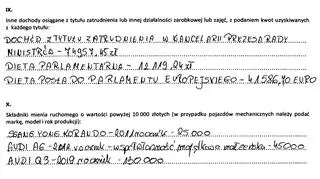 IX.
Inne dochody osiągane z tytułu zatrudnienia lub innej działalności zarobkowej lub zajęć, z podaniem kwot uzyskiwanych
z każdego tytułu:
DOCHÓD Z TYTUŁU ZATRUDNIENIA W KANCELARII PREZESA RADY
MINISTRÓW - 74957,45 zł
DIETA PARLAMENTARNA - 12119,24 zł
DIETA POSŁA DO PARLAMENTU EUROPEJSKIEGO - 41586,70 EURO
X.
Składniki mienia ruchomego o wartości powyżej 10 000 złotych (w przypadku pojazdów mechanicznych należy podać
markę, model i rok produkcji):
SSANG YONG KORANDO - 2011 rocznik - 25000
AUDI A6 - 2012 rocznik - współwłasność majątkowa małżeńska - 45000
AUDI Q3 - 2019 rocznik - 130000